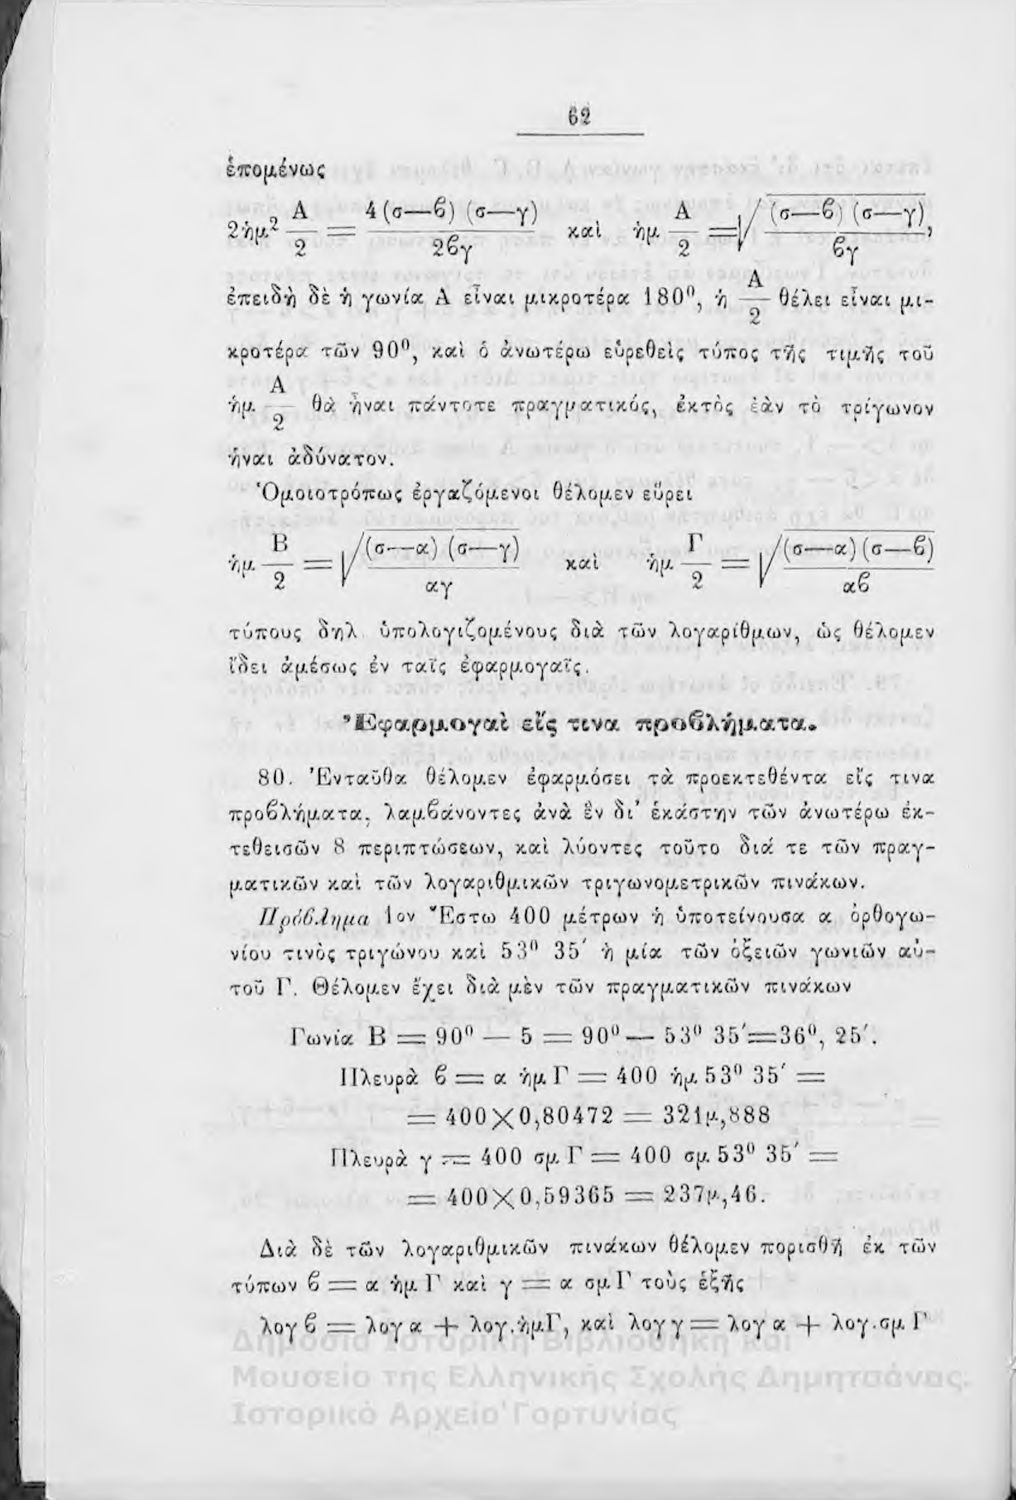 62
ἑπομένως
2ἡμ.² Α/2 = 4 (σ—ϐ) (σ—γ)/2ϐγ καὶ ἡμ. Α/2 = √(σ—ϐ) (σ—γ)/ϐγ,
ἐπειδὴ δὲ ἡ γωνία Α εἶναι μικροτέρα 180⁰, ἡ Α/2 θέλει εἶναι μι-
κροτέρα τῶν 90⁰, καὶ ὁ ἀνωτέρω εὑρεθεὶς τύπος τῆς τιμῆς τοῦ
ἡμ. Α/2 θὰ ἦναι πάντοτε πραγματικός, ἐκτὸς ἐὰν τὸ τρίγωνον
ἦναι ἀδύνατον.
Ὁμοιοτρόπως ἐργαζόμενοι θέλομεν εὕρει
ἡμ. Β/2 = √(σ—α) (σ—γ)/αγ καὶ ἡμ. Γ/2 = √(σ—α) (σ—ϐ)/αϐ
τύπους δηλ. ὑπολογιζομένους διὰ τῶν λογαρίθμων, ὡς θέλομεν
ἴδει ἀμέσως ἐν ταῖς ἐφαρμογαῖς.
Ἐφαρμογαὶ εἴς τινα προϐλήματα.
80. Ἐνταῦθα θέλομεν ἐφαρμόσει τὰ προεκτεθέντα εἴς τινα
προϐλήματα, λαμϐάνοντες ἀνὰ ἓν δι’ ἑκάστην τῶν ἀνωτέρω ἐκ-
τεθεισῶν 8 περιπτώσεων, καὶ λύοντες τοῦτο διά τε τῶν πραγ-
ματικῶν καὶ τῶν λογαριθμικῶν τριγωνομετρικῶν πινάκων.
Πρόϐλημα 1ον Ἔστω 400 μέτρων ἡ ὑποτείνουσα α ὀρθογω-
νίου τινὸς τριγώνου καὶ 53⁰ 35′ ἡ μία τῶν ὀξειῶν γωνιῶν αὐ-
τοῦ Γ. Θέλομεν ἔχει διὰ μὲν τῶν πραγματικῶν πινάκων
Γωνία Β = 90⁰ — 5 = 90⁰ — 53⁰ 35′=36⁰, 25′.
Πλευρὰ ϐ = α ἡμ. Γ = 400 ἡμ. 53⁰ 35′ =
= 400×0,80472 = 321μ.,888
Πλευρὰ γ = 400 σμ. Γ = 400 σμ. 53⁰ 35′ =
= 400×0,59365 = 237μ.,46.
Διὰ δὲ τῶν λογαριθμικῶν πινάκων θέλομεν πορισθῆ ἐκ τῶν
τύπων ϐ = α ἡμ. Γ καὶ γ = α σμ. Γ τοὺς ἑξῆς
λογ ϐ = λογ α + λογ.ἡμ.Γ, καὶ λογ γ = λογ α + λογ.σμ. Γ
Δημόσια Ιστορική Βιβλιοθήκη και
Μουσείο της Ελληνικής Σχολής Δημητσάνας.
Ιστορικό Αρχείο Γορτυνίας